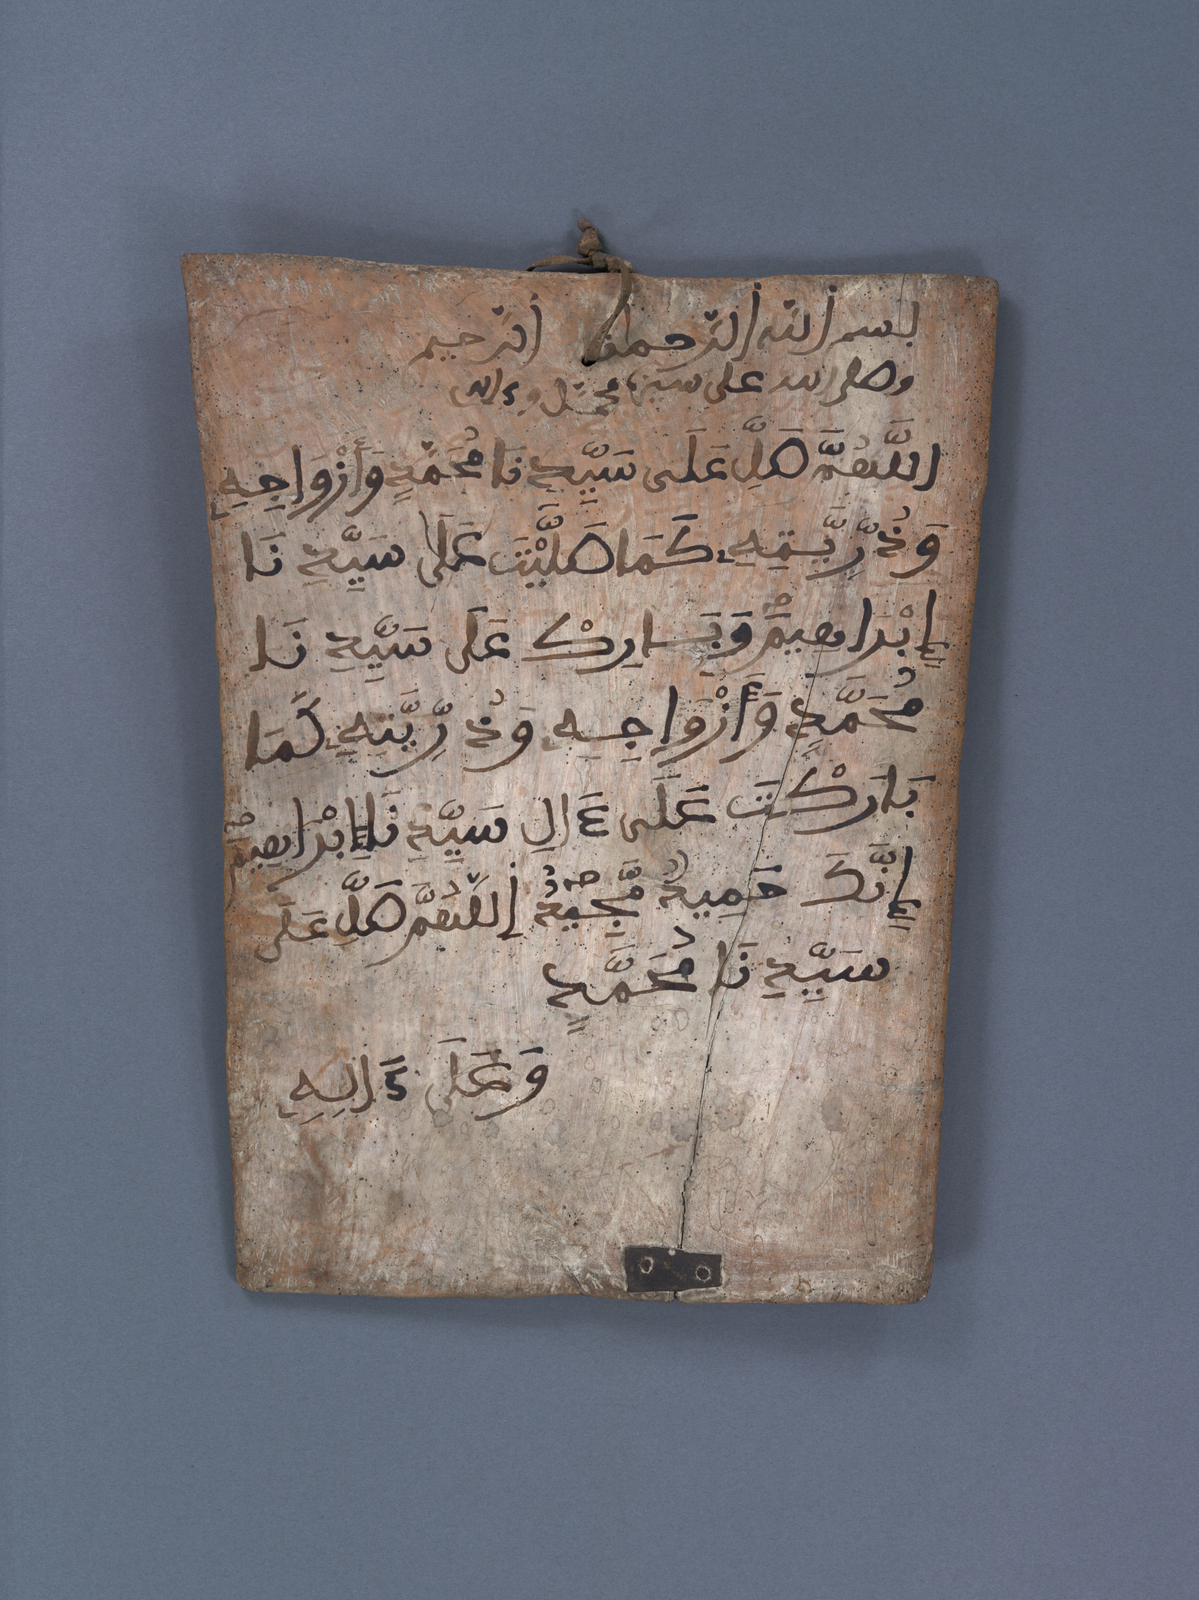 بسم الله الرحمن الرحيم
وصلى الله على سيدنا محمد وءاله
اللَّهُمَّ صَلِّ عَلَى سَيِّدِنَا مُحَمَّدٍ وَأَزْوَاجِهِ
وَذُرِّيَّتِهِ كَمَا صَلَّيْتَ عَلَى سَيِّدِنَا
إِبْرَاهِيمَ وَبَارِكْ عَلَى سَيِّدِنَا
مُحَمَّدٍ وَأَزْوَاجِهِ وَذُرِّيَّتِهِ كَمَا
بَارَكْتَ عَلَى ءَالِ سَيِّدِنَا إِبْرَاهِيمَ
إِنَّكَ حَمِيدٌ مَّجِيدٌ اللَّهُمَّ صَلِّ عَلَى
سَيِّدِنَا مُحَمَّدٍ
وَعَلَى ءَالِهِ